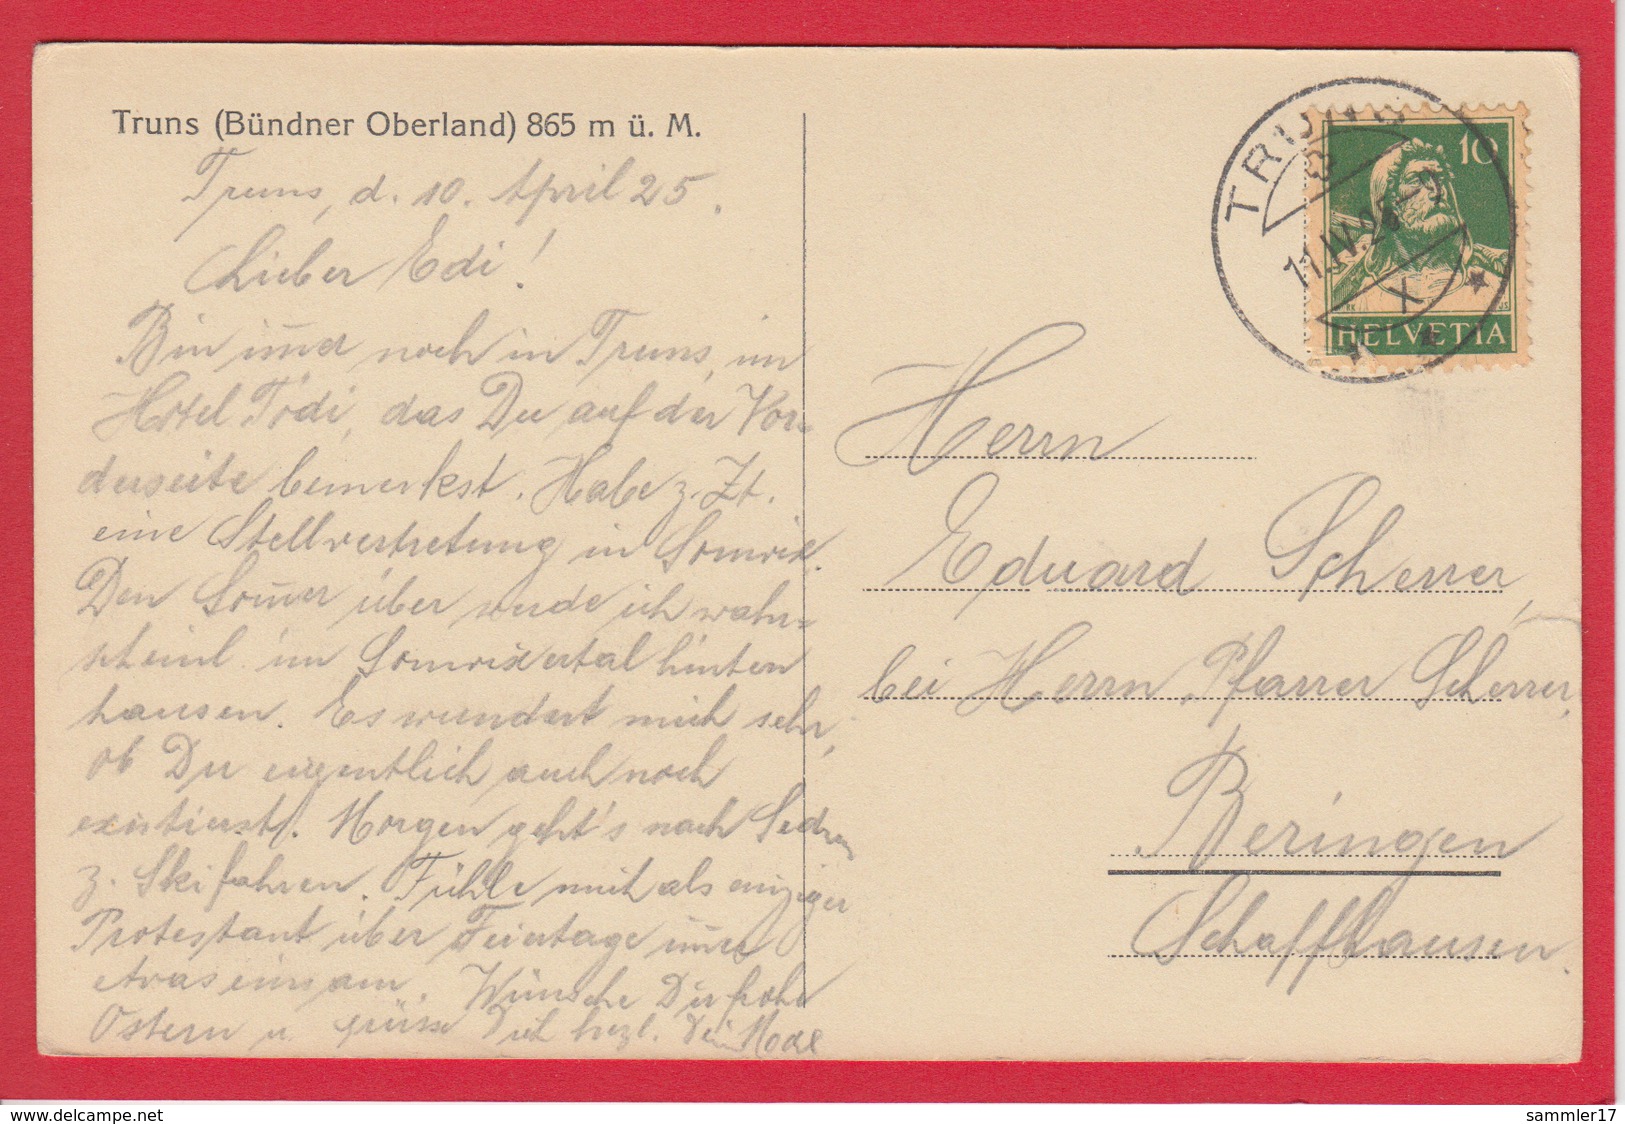 Truns (Bündner Oberland) 865 m ü. M.
Truns, d. 10. April 25.
Lieber Edi!
Bin im̅er noch in Truns, im
Hotel Tödi, das Du auf der Vor=
derseite bemerkst. Habe z. Zt.
eine Stellvertretung in Somvix.
Den Som̅er über werde ich wahr=
scheinl. im Somvixertal hinten
hausen. Es wundert mich sehr,
ob Du eigentlich auch noch
existierst/. Morgen geht's nach Sedrun
z. Skifahren. Fühle mich als einziger
Protestant über Feiertage im̅er
etwas einsam. Wünsche Dir frohe
Ostern u. grüsse Dich herzl. Dein
TRUNS
11.IV.25
X
10
HELVETIA
Herrn
Eduard Scherrer,
bei Herrn Pfarrer Scherrer,
Beringen
Schaffhausen.
www.delcampe.net
sammler17